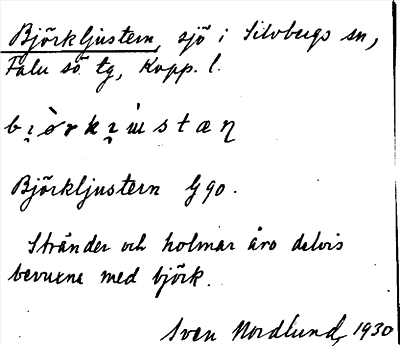 Björkljustern, sjö i Silvbergs sn,
Falu sö. tg, Kopp. l.
Björkljustern G 90.
Stränder och holmar äro delvis
bevuxna med björk.
Sven Nordlund, 1930